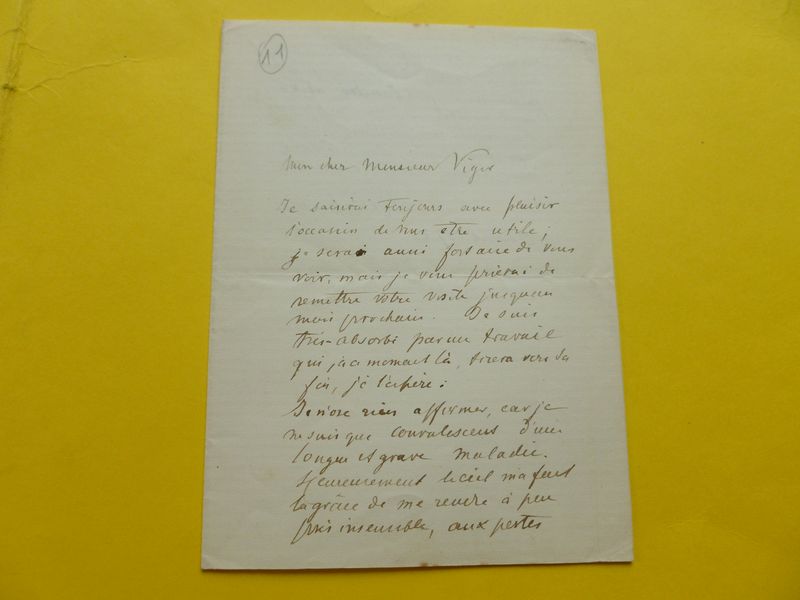 11
Mon cher Monsieur Viger
Je saisirai toujours avec plaisir
l'occasion de vous etre utile;
je serai aussi fort aise de vous
voir, mais je vous prierai de
remettre votre visite jusqu'au
mois prochain. Je suis
très-absorbé par un travail
qui, à ce moment là, tirera vers sa
fin, je l'espère.
Je n'ose rien affirmer, car je
ne suis que convalescent d'une
longue et grave maladie.
Heureusement le ciel m'a fait
la grâce de me rendre à peu
près insensible, aux pertes